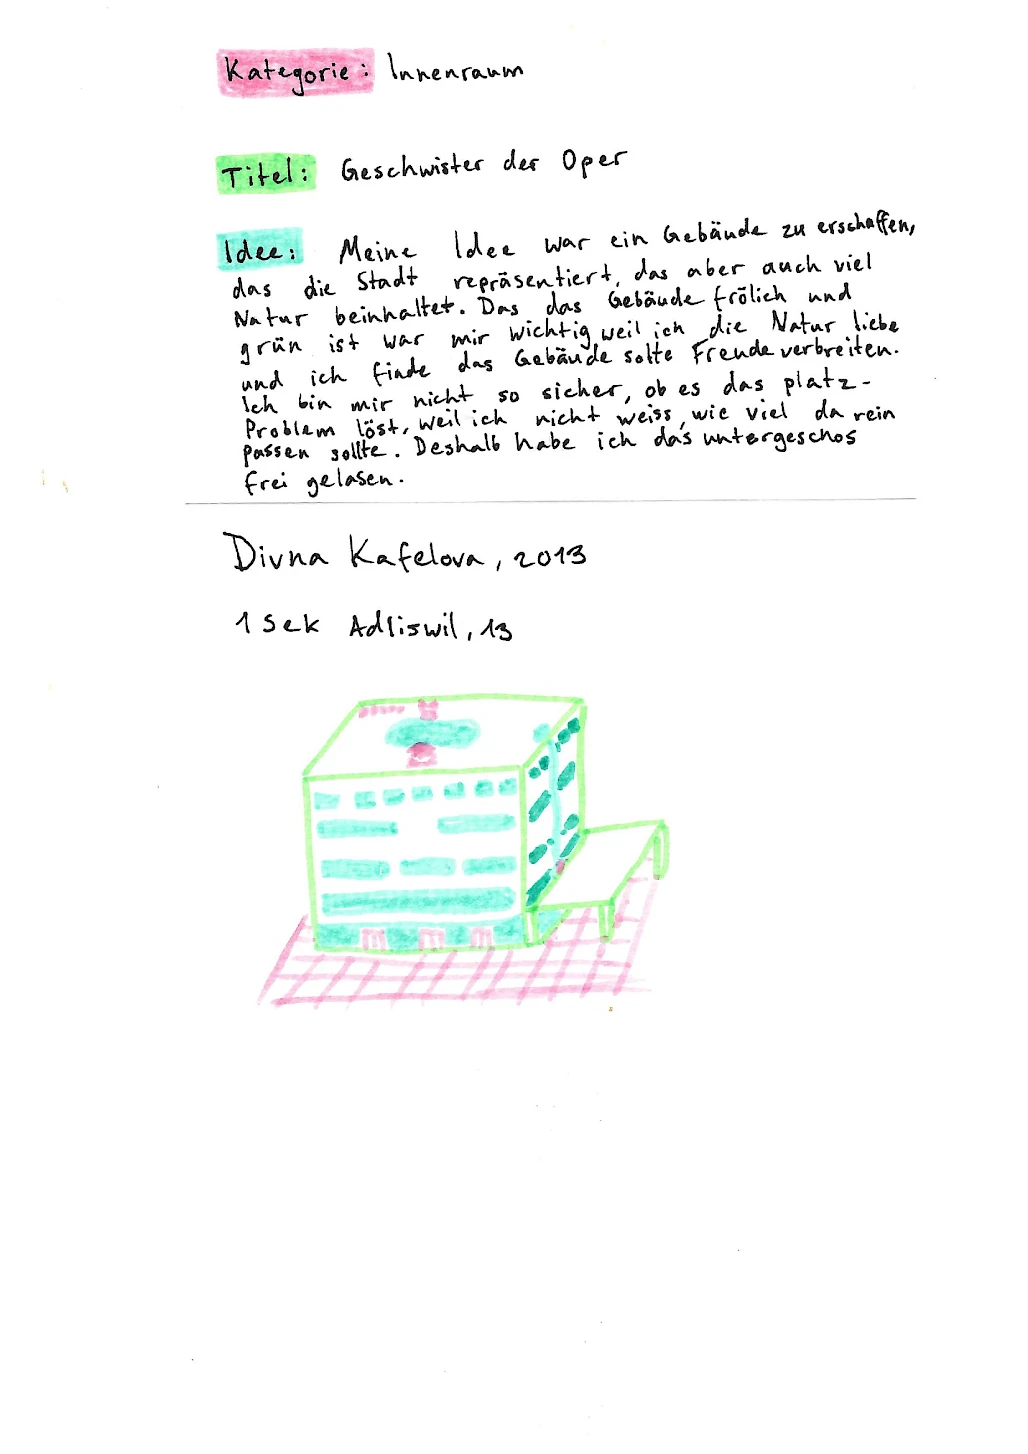 Kategorie: Innenraum
Titel: Geschwister der Oper
Idee: Meine Idee war ein Gebäude zu erschaffen,
das die Stadt repräsentiert, das aber auch viel
Natur beinhaltet. Das das Gebäude frölich und
grün ist war mir wichtig weil ich die Natur liebe
und ich finde das Gebäude solte Freude verbreiten.
Ich bin mir nicht so sicher, ob es das platz-
Problem löst, weil ich nicht weiss, wie viel da rein
passen sollte. Deshalb habe ich das untergeschos
frei gelasen.
Divna Kafelova, 2013
1 Sek Adliswil, 13